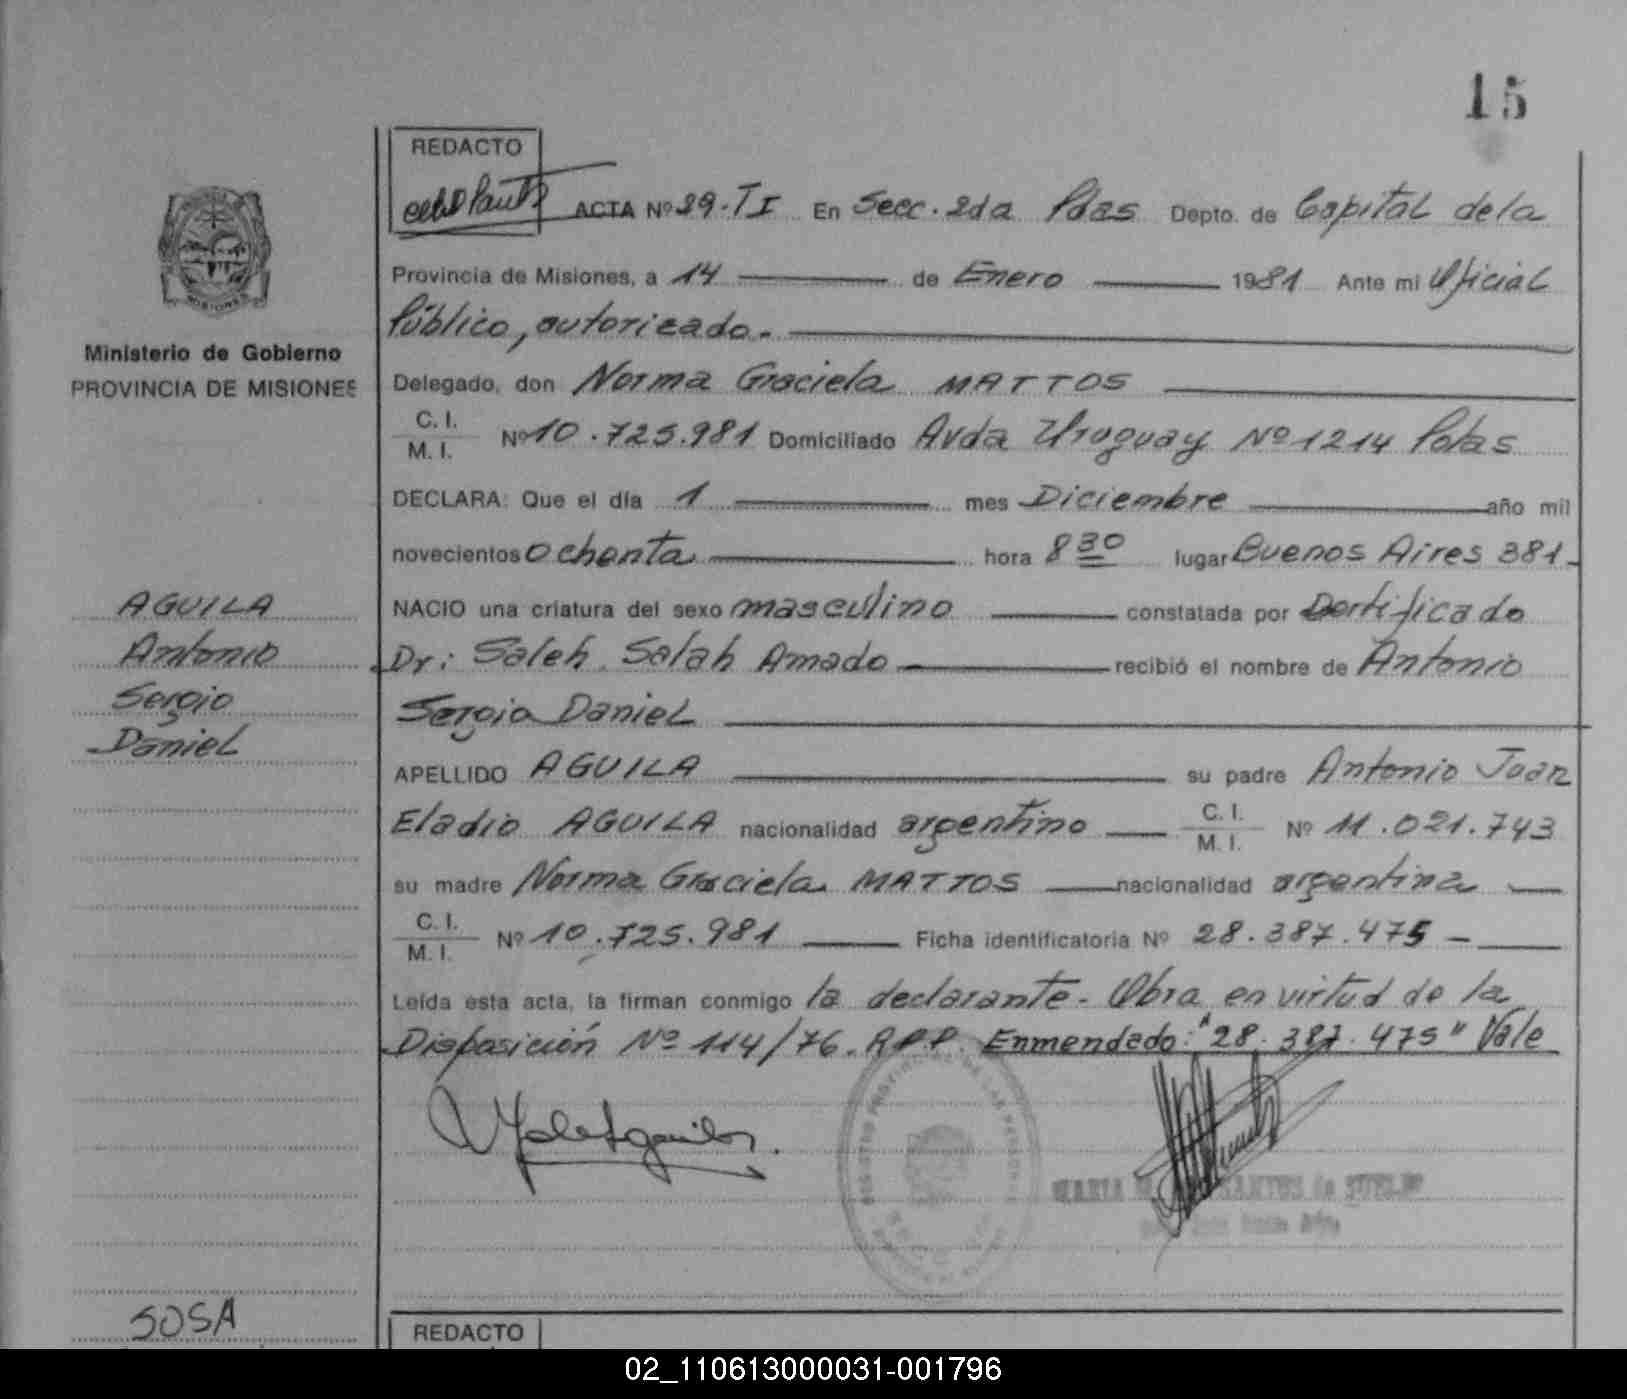 15
REDACTO
ACTA Nº 29-TI En Secc. 2da Pdas Depto. de Capital de la
Provincia de Misiones, a 14 de Enero 1981 Ante mi Oficial
Público, autorizado.
Ministerio de Gobierno
PROVINCIA DE MISIONES
Delegado, don Norma Graciela MATTOS
C. I.
M. I. Nº 10.725.981 Domiciliado Avda Uruguay Nº 1214 Pdas
DECLARA: Que el día 1 mes Diciembre año mil
novecientos ochenta hora 8 30 lugar Buenos Aires 381-
AGUILA
Antonio
Sergio
Daniel
NACIO una criatura del sexo masculino constatada por Certificado
Dr: Saleh Salah Amado recibió el nombre de Antonio
Sergio Daniel
APELLIDO AGUILA su padre Antonio Juan
Eladio AGUILA nacionalidad argentino C. I. M. I. Nº 11.021.743
su madre Norma Graciela MATTOS nacionalidad argentina
C. I.
M. I. Nº 10.725.981 Ficha identificatoria Nº 28.387.475 -
Leída esta acta, la firman conmigo la declarante - Obra en virtud de la
Disposición Nº 114/76. R.P.P. Enmendado: "28.387.475" Vale
SOSA
REDACTO
02_110613000031-001796